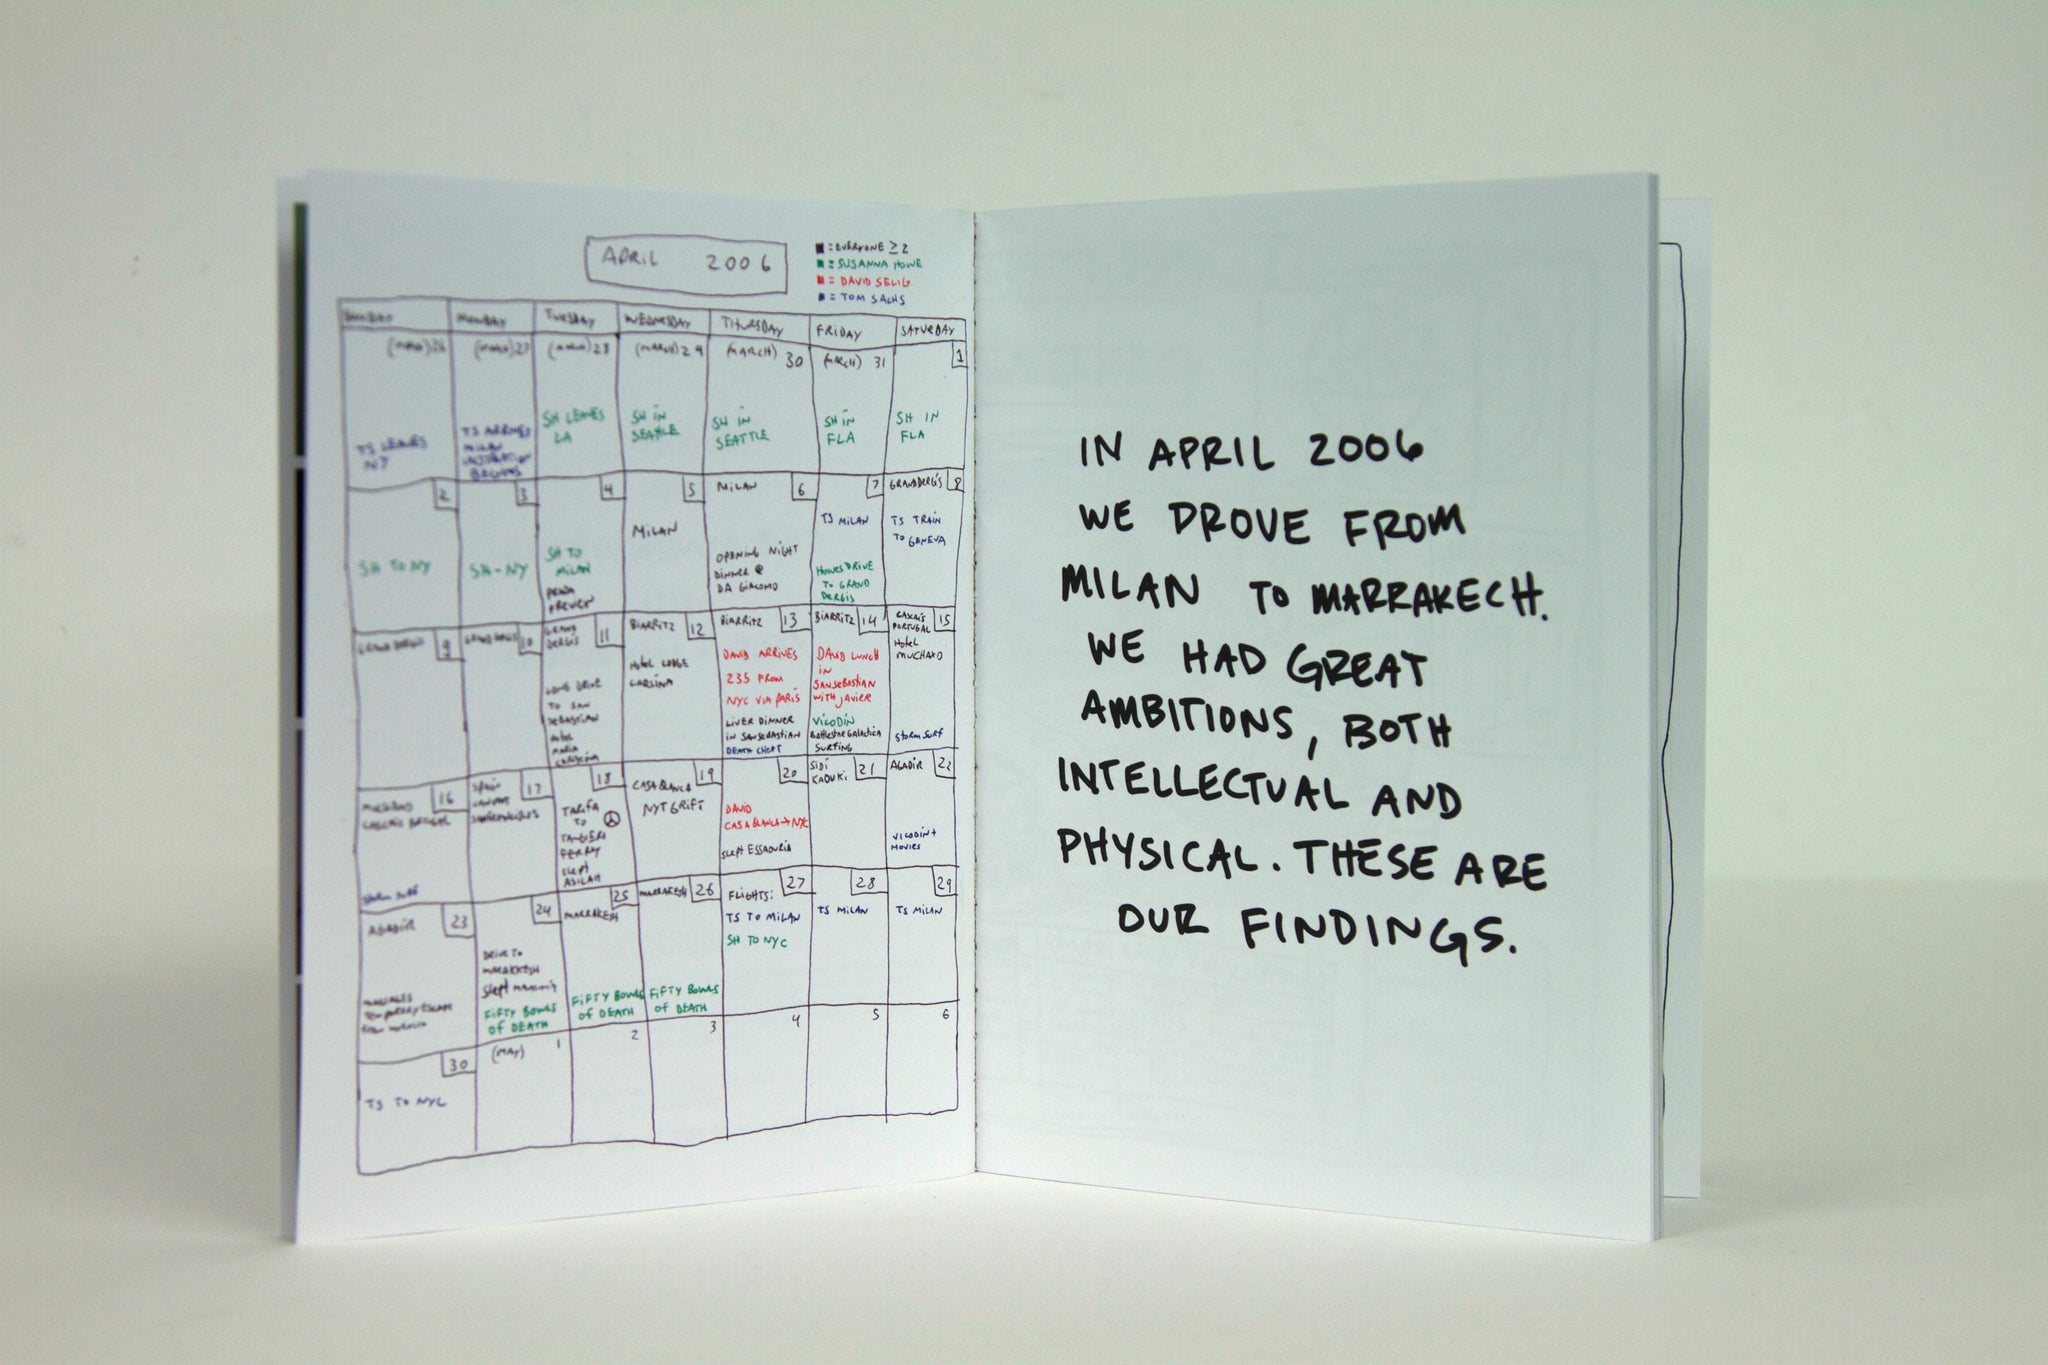 APRIL 2006
■ = EVERYONE ≥ 2
■ = SUSANNA HOWE
■ = DAVID SELIG
■ = TOM SACHS
SUNDAY MONDAY TUESDAY WEDNESDAY THURSDAY FRIDAY SATURDAY
(MARCH) 26
TS LEAVES
NY
(MARCH) 27
TS ARRIVES
MILAN
INSTALLATION
BEGINS
(MARCH) 28
SH LEAVES
LA
(MARCH) 29
SH IN
SEATTLE
(MARCH) 30
SH IN
SEATTLE
(MARCH) 31
SH IN
FLA
1
SH IN
FLA
2
SH TO NY
3
SH - NY
4
SH TO
MILAN
5
MILAN
MILAN 6
OPENING NIGHT
DINNER @
DA GIACOMO
7
TS MILAN
HOWES DRIVE
TO GRAND
DERGIS
GRANDDERGIS 8
TS TRAIN
TO GENEVA
9
10
GRAND
DERGIS 11
LONG DRIVE
TO SAN
SEBASTIAN
HOTEL
MARIA
BIARRITZ 12
HOTEL LODGE
BIARRITZ 13
DAVID ARRIVES
235 FROM
NYC VIA PARIS
LIVER DINNER
IN SANSEBASTIAN
DEATH CHEAT
BIARRITZ 14
DAVID LUNCH
IN
SANSEBASTIAN
WITH JAVIER
VICODIN
BATTLESTAR GALACTICA
SURFING
CASCAIS
PORTUGAL 15
HOTEL
MUCHAXO
STORM SURF
16
STORM SURF
SPAIN 17
18
TARIFA
TO
TANGIERS
FERRY
SLEPT
ASILAH
19
CASABLANCA
NYT GRIFT
20
DAVID
CASABLANCA→NYC
SLEPT ESSAOURIA
SIDI
KAOUKI 21
AGADIR 22
VICODIN +
MOVIES
AGADIR 23
24
DRIVE TO
MARAKKESH
SLEPT
FIFTY BOWLS
OF DEATH
25
MARRAKESH
FIFTY BOWLS
OF DEATH
MARRAKESH 26
FIFTY BOWLS
OF DEATH
FLIGHTS: 27
TS TO MILAN
SH TO NYC
28
TS MILAN
29
TS MILAN
30
TS TO NYC
(MAY) 1
2
3
4
5
6
IN APRIL 2006
WE DROVE FROM
MILAN TO MARRAKECH.
WE HAD GREAT
AMBITIONS, BOTH
INTELLECTUAL AND
PHYSICAL. THESE ARE
OUR FINDINGS.